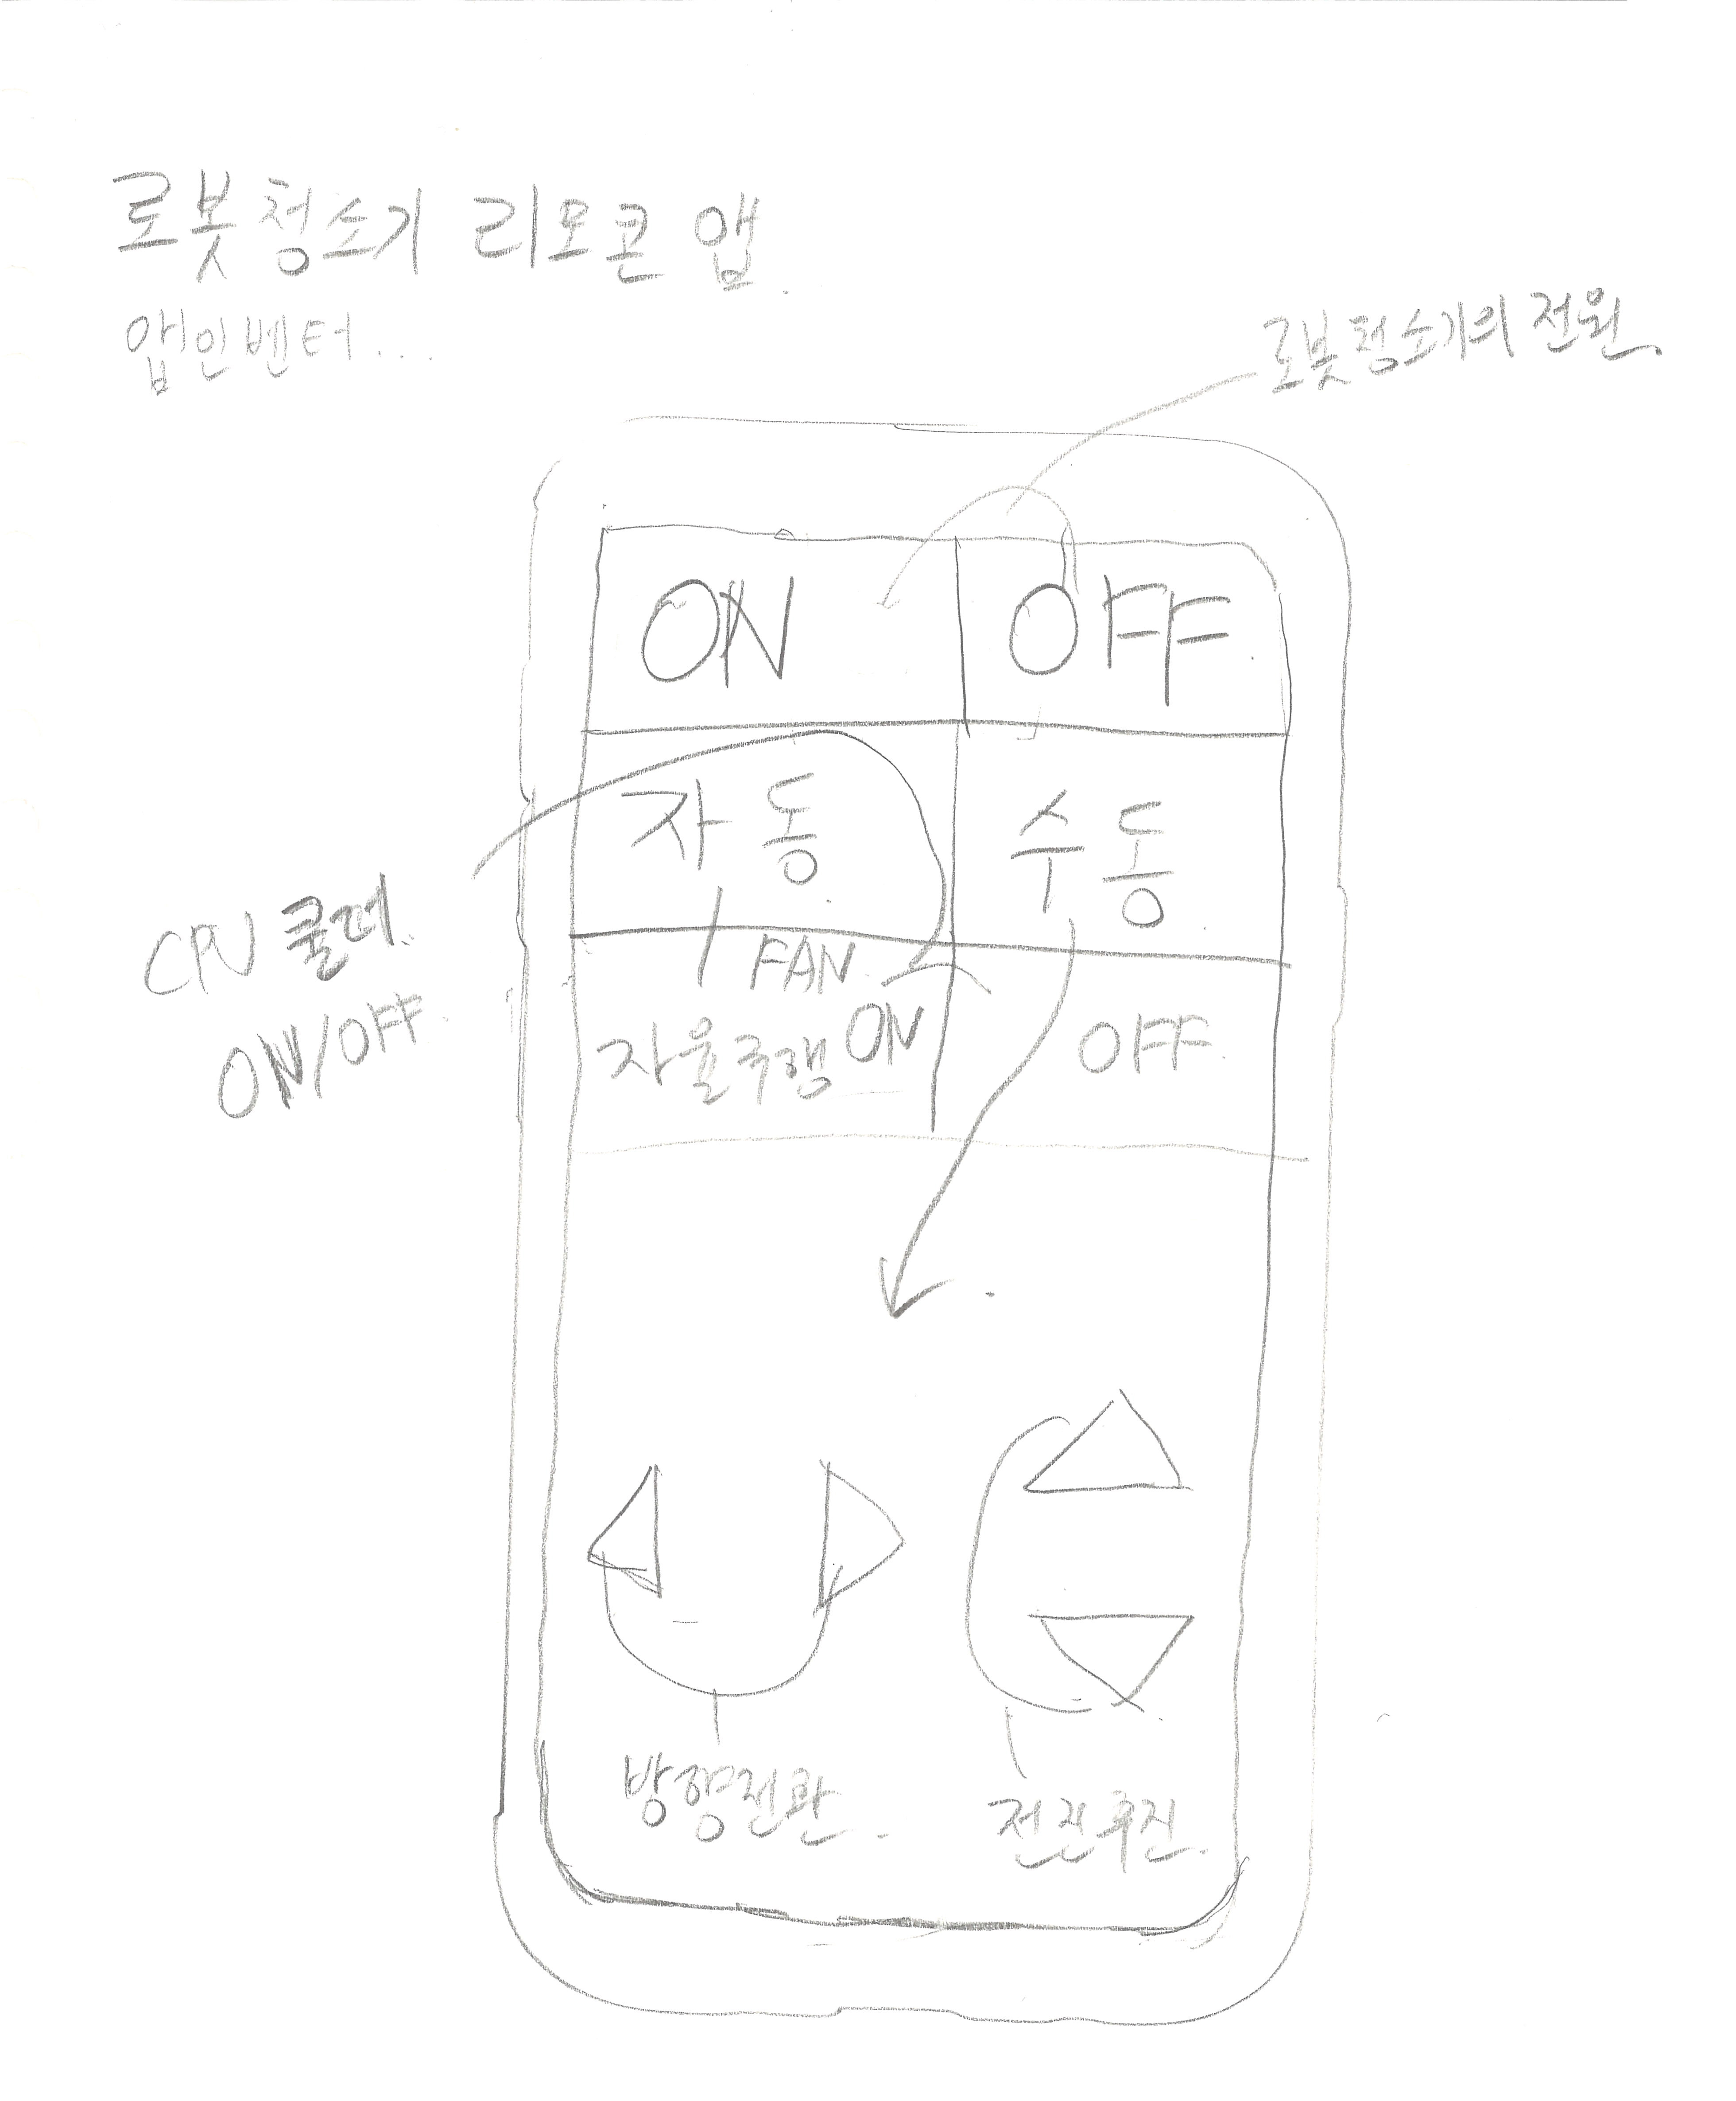 로봇청소기 리모콘 앱.
앱인벤터...
로봇청소기의 전원.
ON OFF.
자동 수동
CPU 쿨러
ON/OFF
FAN
자율주행 ON OFF
방향전환
전진후진